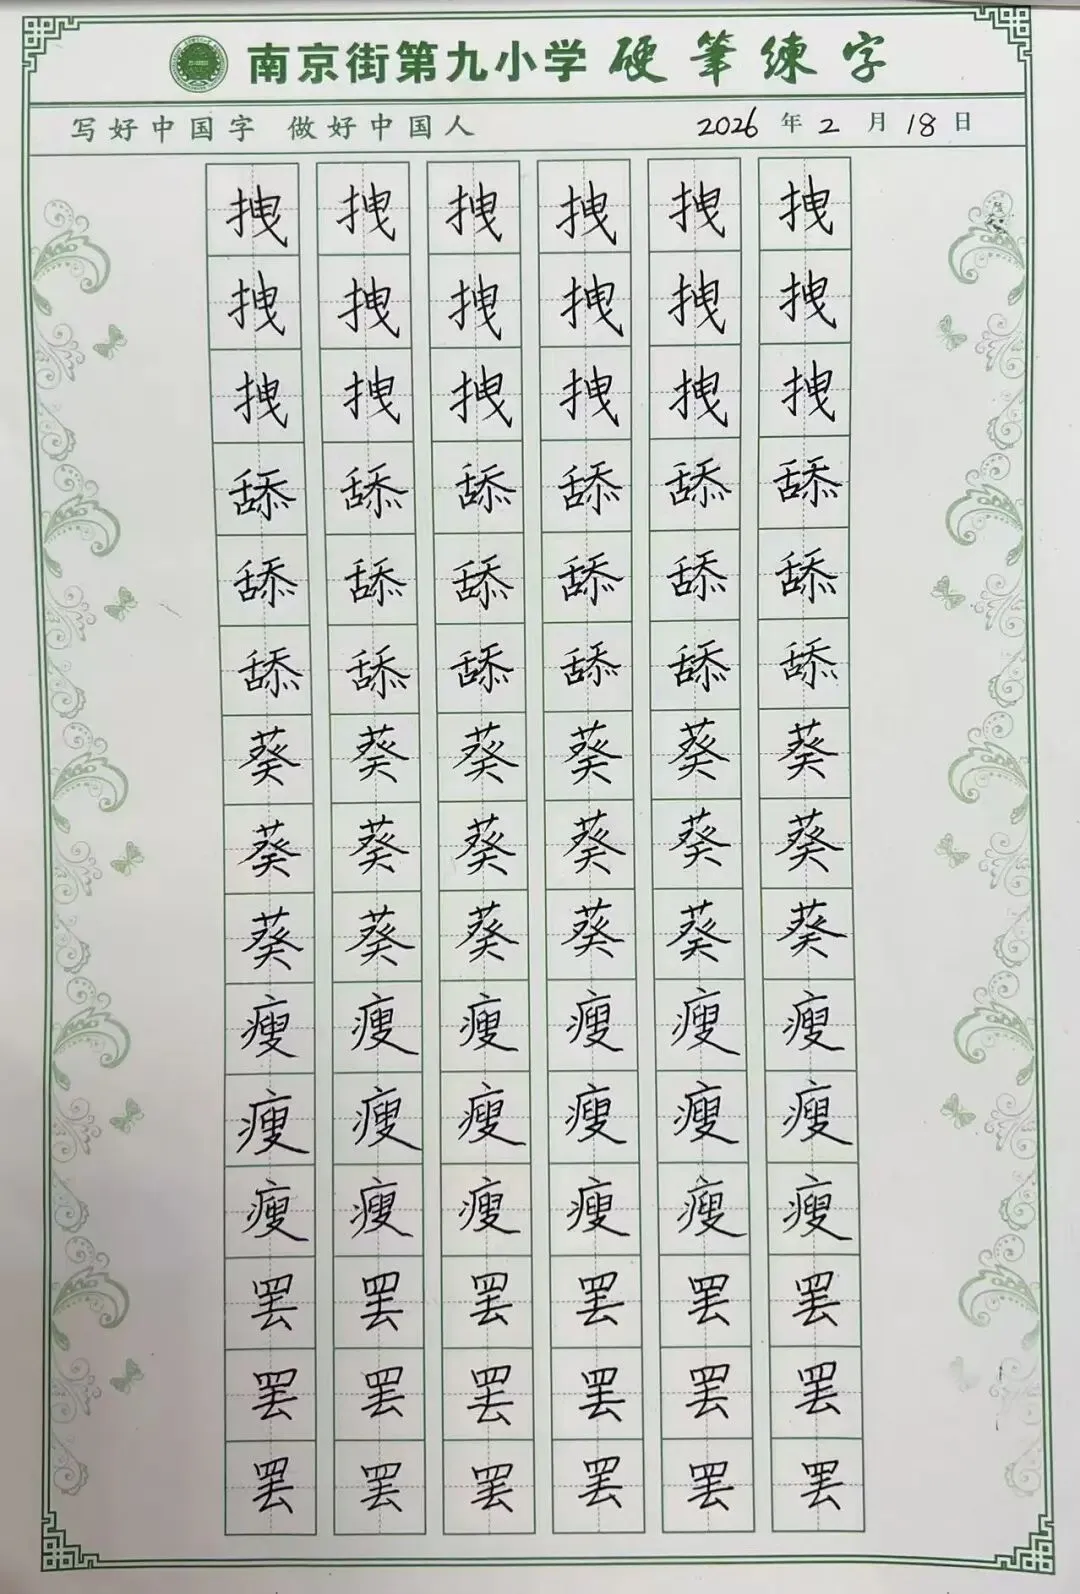 南京街第九小学硬筆練字
写好中国字 做好中国人 2026年2月18日
拽 拽 拽 拽 拽 拽
拽 拽 拽 拽 拽 拽
拽 拽 拽 拽 拽 拽
舔 舔 舔 舔 舔 舔
舔 舔 舔 舔 舔 舔
舔 舔 舔 舔 舔 舔
葵 葵 葵 葵 葵 葵
葵 葵 葵 葵 葵 葵
葵 葵 葵 葵 葵 葵
瘦 瘦 瘦 瘦 瘦 瘦
瘦 瘦 瘦 瘦 瘦 瘦
瘦 瘦 瘦 瘦 瘦 瘦
罢 罢 罢 罢 罢 罢
罢 罢 罢 罢 罢 罢
罢 罢 罢 罢 罢 罢